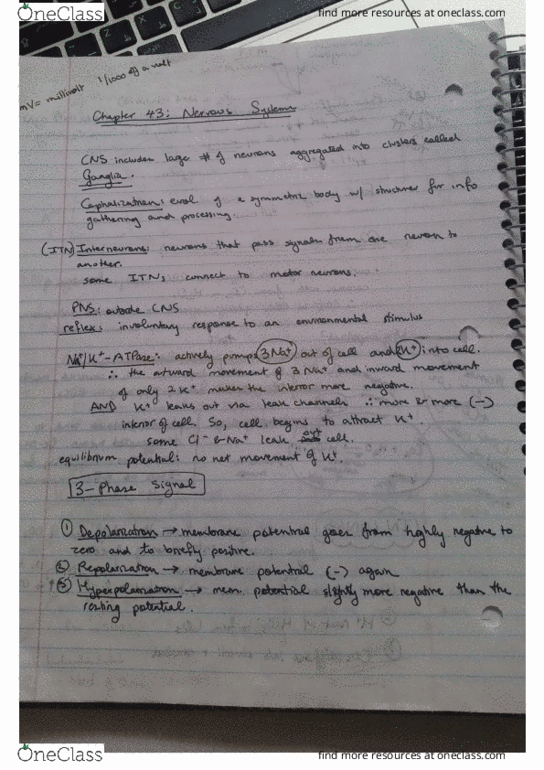 OneClass
find more resources at oneclass.com
mV = millivolt 1/1000 of a volt
Chapter 43: Nervous System
CNS includes large # of neurons aggregated into clusters called
Ganglia.
Cephalization: evol of a symmetric body w/ structures for info
gathering and processing.
(ITN) Interneurons: neurons that pass signals from one neuron to
another.
some ITNs connect to motor neurons.
PNS: outside CNS
reflex: involuntary response to an environmental stimulus
Na+/K+-ATPase: actively pumps 3Na+ out of cell and 2K+ into cell.
∴ the outward movement of 3 Na+ and inward movement
of only 2 K+ makes the interior more negative.
AND K+ leaks out via leak channels ∴ more & more (-)
interior of cell. So, cell begins to attract K+.
some Cl- & Na+ leak out cell.
equilibrium potential: no net movement of K+.
3-Phase Signal
① Depolarization → membrane potential goes from highly negative to
zero and to briefly positive.
② Repolarization → membrane potential (-) again
③ Hyperpolarization → mem. potential slightly more negative than the
resting potential.
OneClass
find more resources at oneclass.com